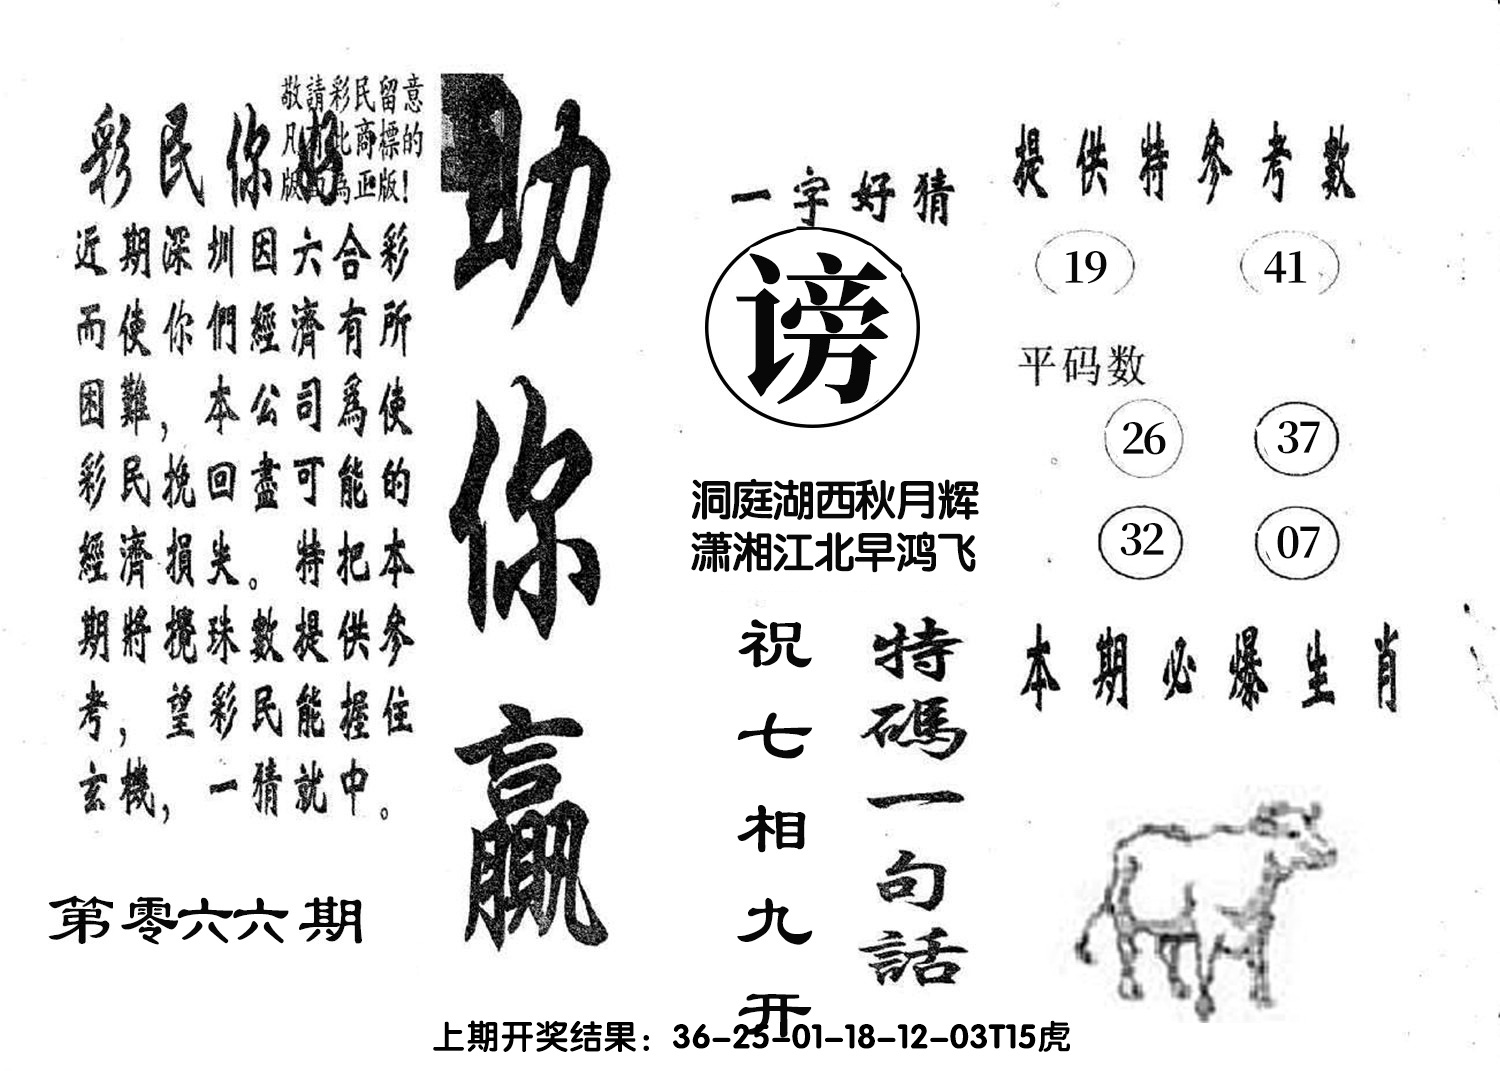 敬請彩民留意
凡有此商標的
版面為正版!
彩民你好
近期深圳因六合彩
而使你們經濟有所
困難，本公司爲使
彩民挽回盡可能的
經濟損失。特把本
期將攪珠數提供參
考，望彩民能握住
玄機，一猜就中。
第零六六期
助你贏
一字好猜
谤
洞庭湖西秋月辉
潇湘江北早鸿飞
特碼一句話
祝七相九开
提供特參考數
19 41
平码数
26 37
32 07
本期必爆生肖
上期开奖结果：36-25-01-18-12-03T15虎